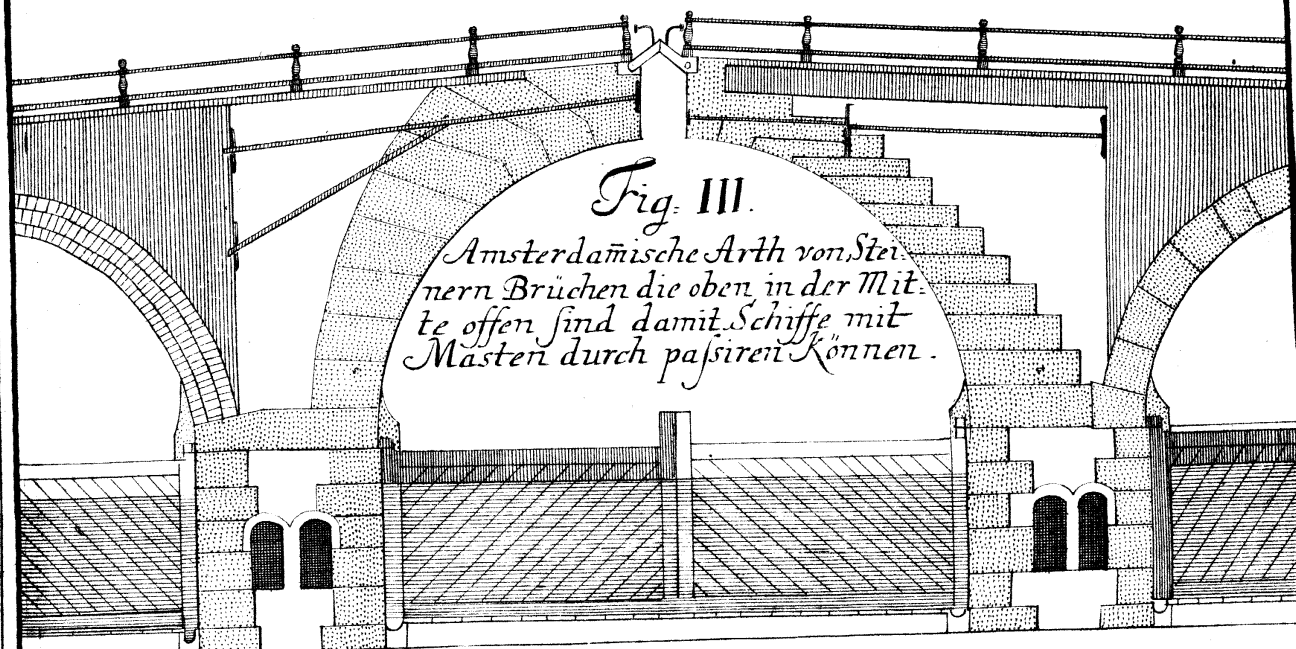 Fig: III.
Amsterdam̄ische Arth von Stei⸗
nern Brüchen die oben in der Mit⸗
te offen ſind damit Schiffe mit
Masten durch paſsiren Können.